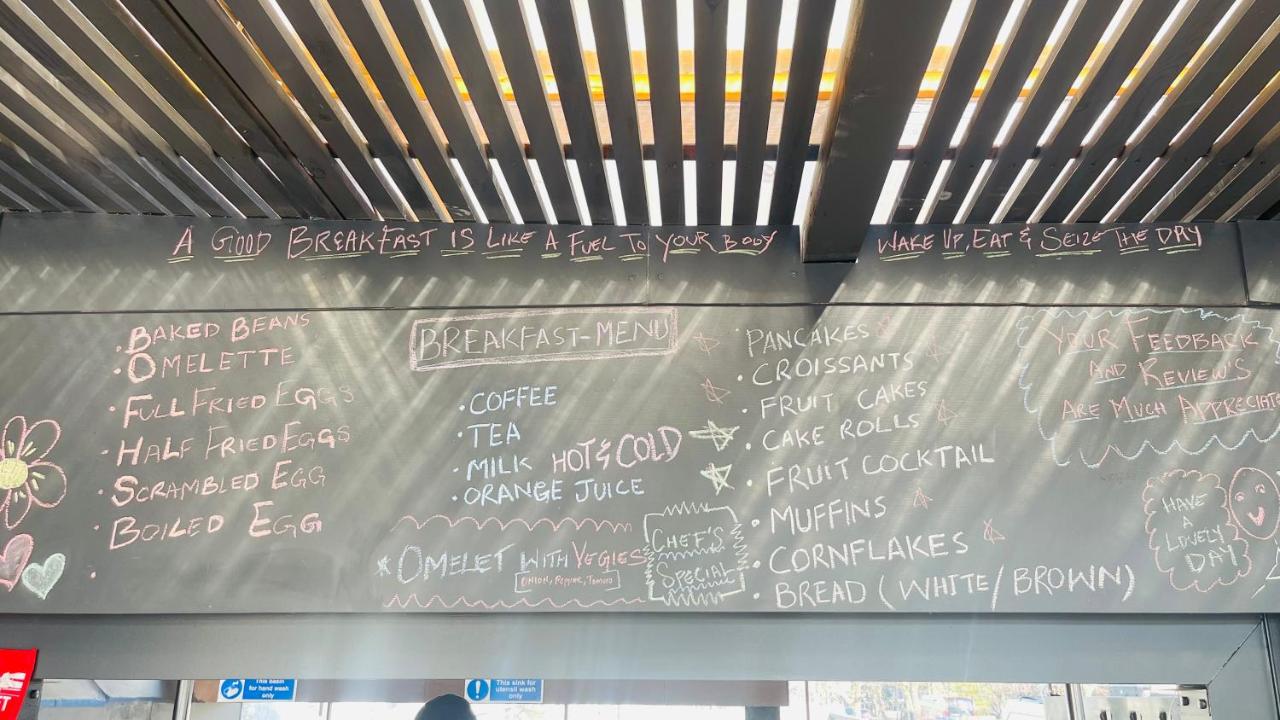 A GOOD BREAKFAST IS LIKE A FUEL TO YOUR BODY
WAKE UP, EAT & SEIZE THE DRY
• BAKED BEANS
• OMELETTE
• FULL FRIED EGGS
• HALF FRIED EGGS
• SCRAMBLED EGG
• BOILED EGG
BREAKFAST-MENU
• COFFEE
• TEA
• MILK HOT & COLD
• ORANGE JUICE
* OMELET WITH VEGIES
ONION, PEPPER, TOMATO
CHEF'S
SPECIAL
• PANCAKES
• CROISSANTS
• FRUIT CAKES
• CAKE ROLLS
• FRUIT COCKTAIL
• MUFFINS
• CORNFLAKES
• BREAD (WHITE/BROWN)
YOUR FEEDBACK
AND REVIEW'S
ARE MUCH APPRECIATE
HAVE
A
LOVELY
DAY
This basin
for hand wash
only
This sink for
utensil wash
only